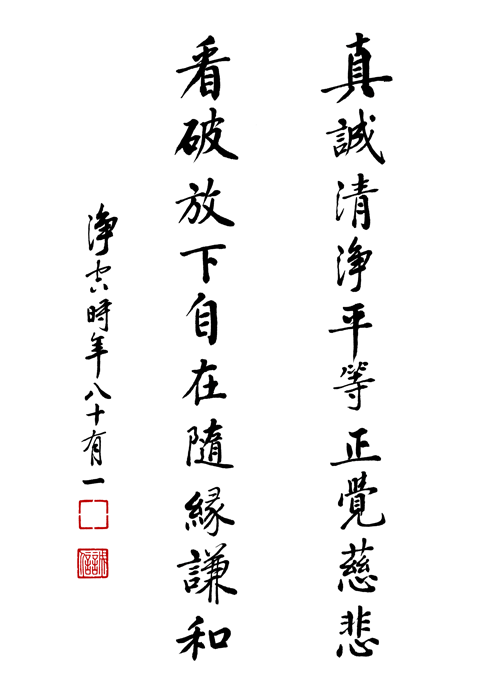 真誠清淨平等正覺慈悲
看破放下自在隨緣謙和
淨空時年八十有一